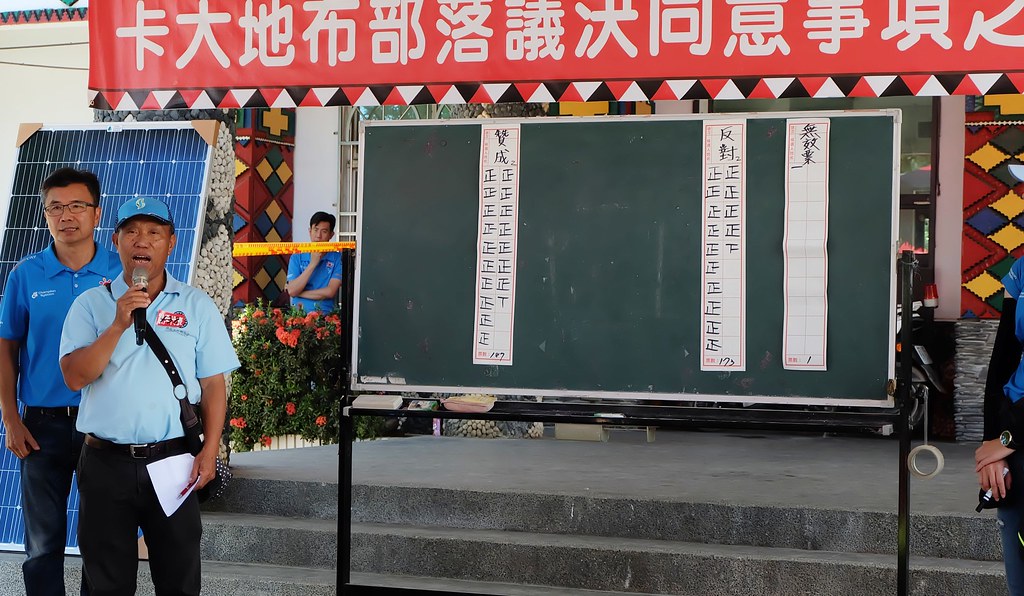 卡大地布部落議決同意事項之
贊成2
正正正正正正正正正正
正正正正正正正丅
票數：187
反對2
正正正正正正正正正正
正正正正下
票數：173
無效票
一
票數：1